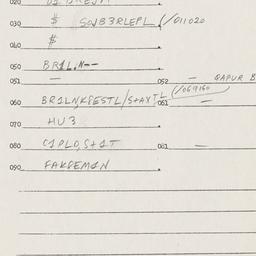 020
030 $ SOJB3RLEPL (/011020
040 #
050 BR1L.N--
051 — 052 — GAPUR B
060 BR1LN,KSESTL/S+AXTL (/069160
061 —
070 HU3
080 C1PLD,S+1T 081 —
090 FAKSEMAN